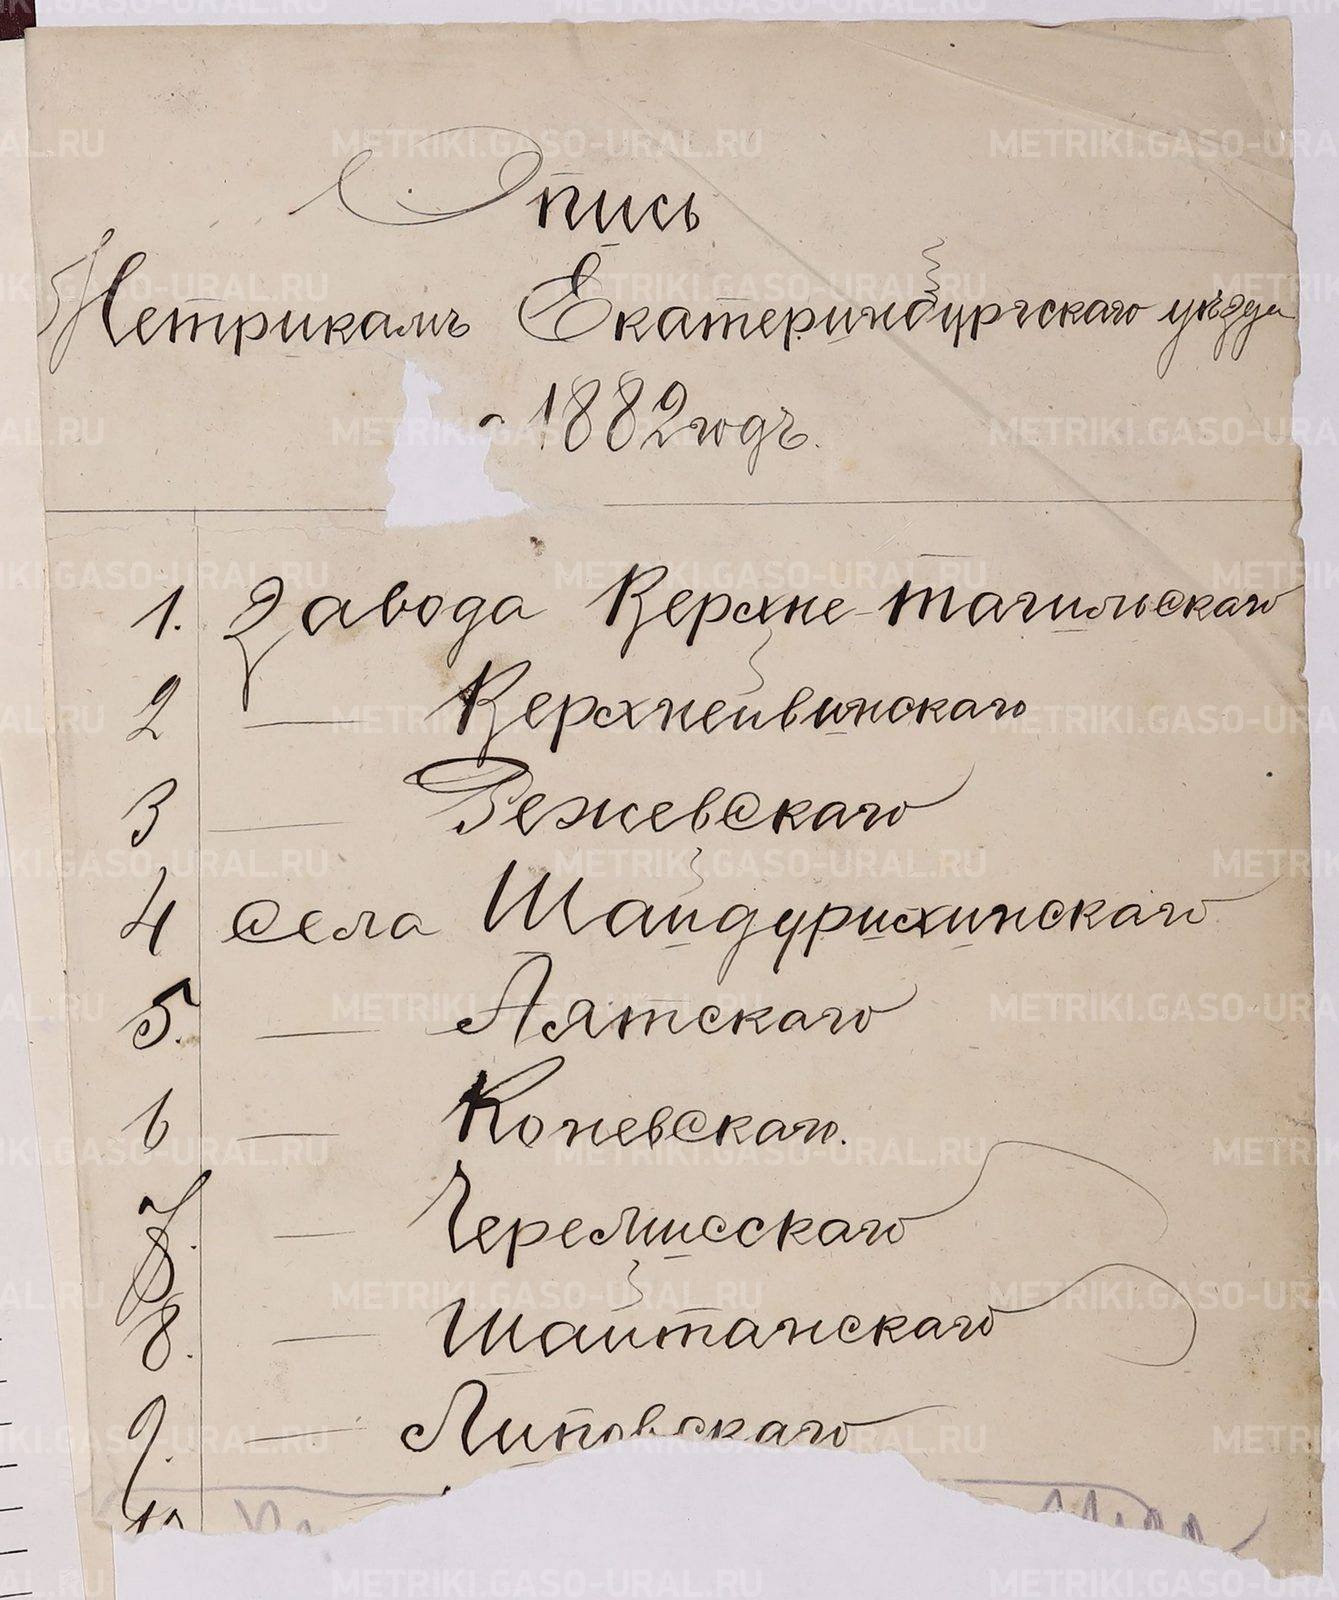 Опись
Метрикамъ Екатеринбургскаго уѣзда
1882 годъ.
1. Завода Верхне-тагильскаго
2 — Верхнейвинскаго
3 — Режевскаго
4 села Шайдурихинскаго
5. — Аятскаго
6 — Коневскаго.
7. — Черемисскаго
8. — Шайтанскаго
9. — Липовскаго
10